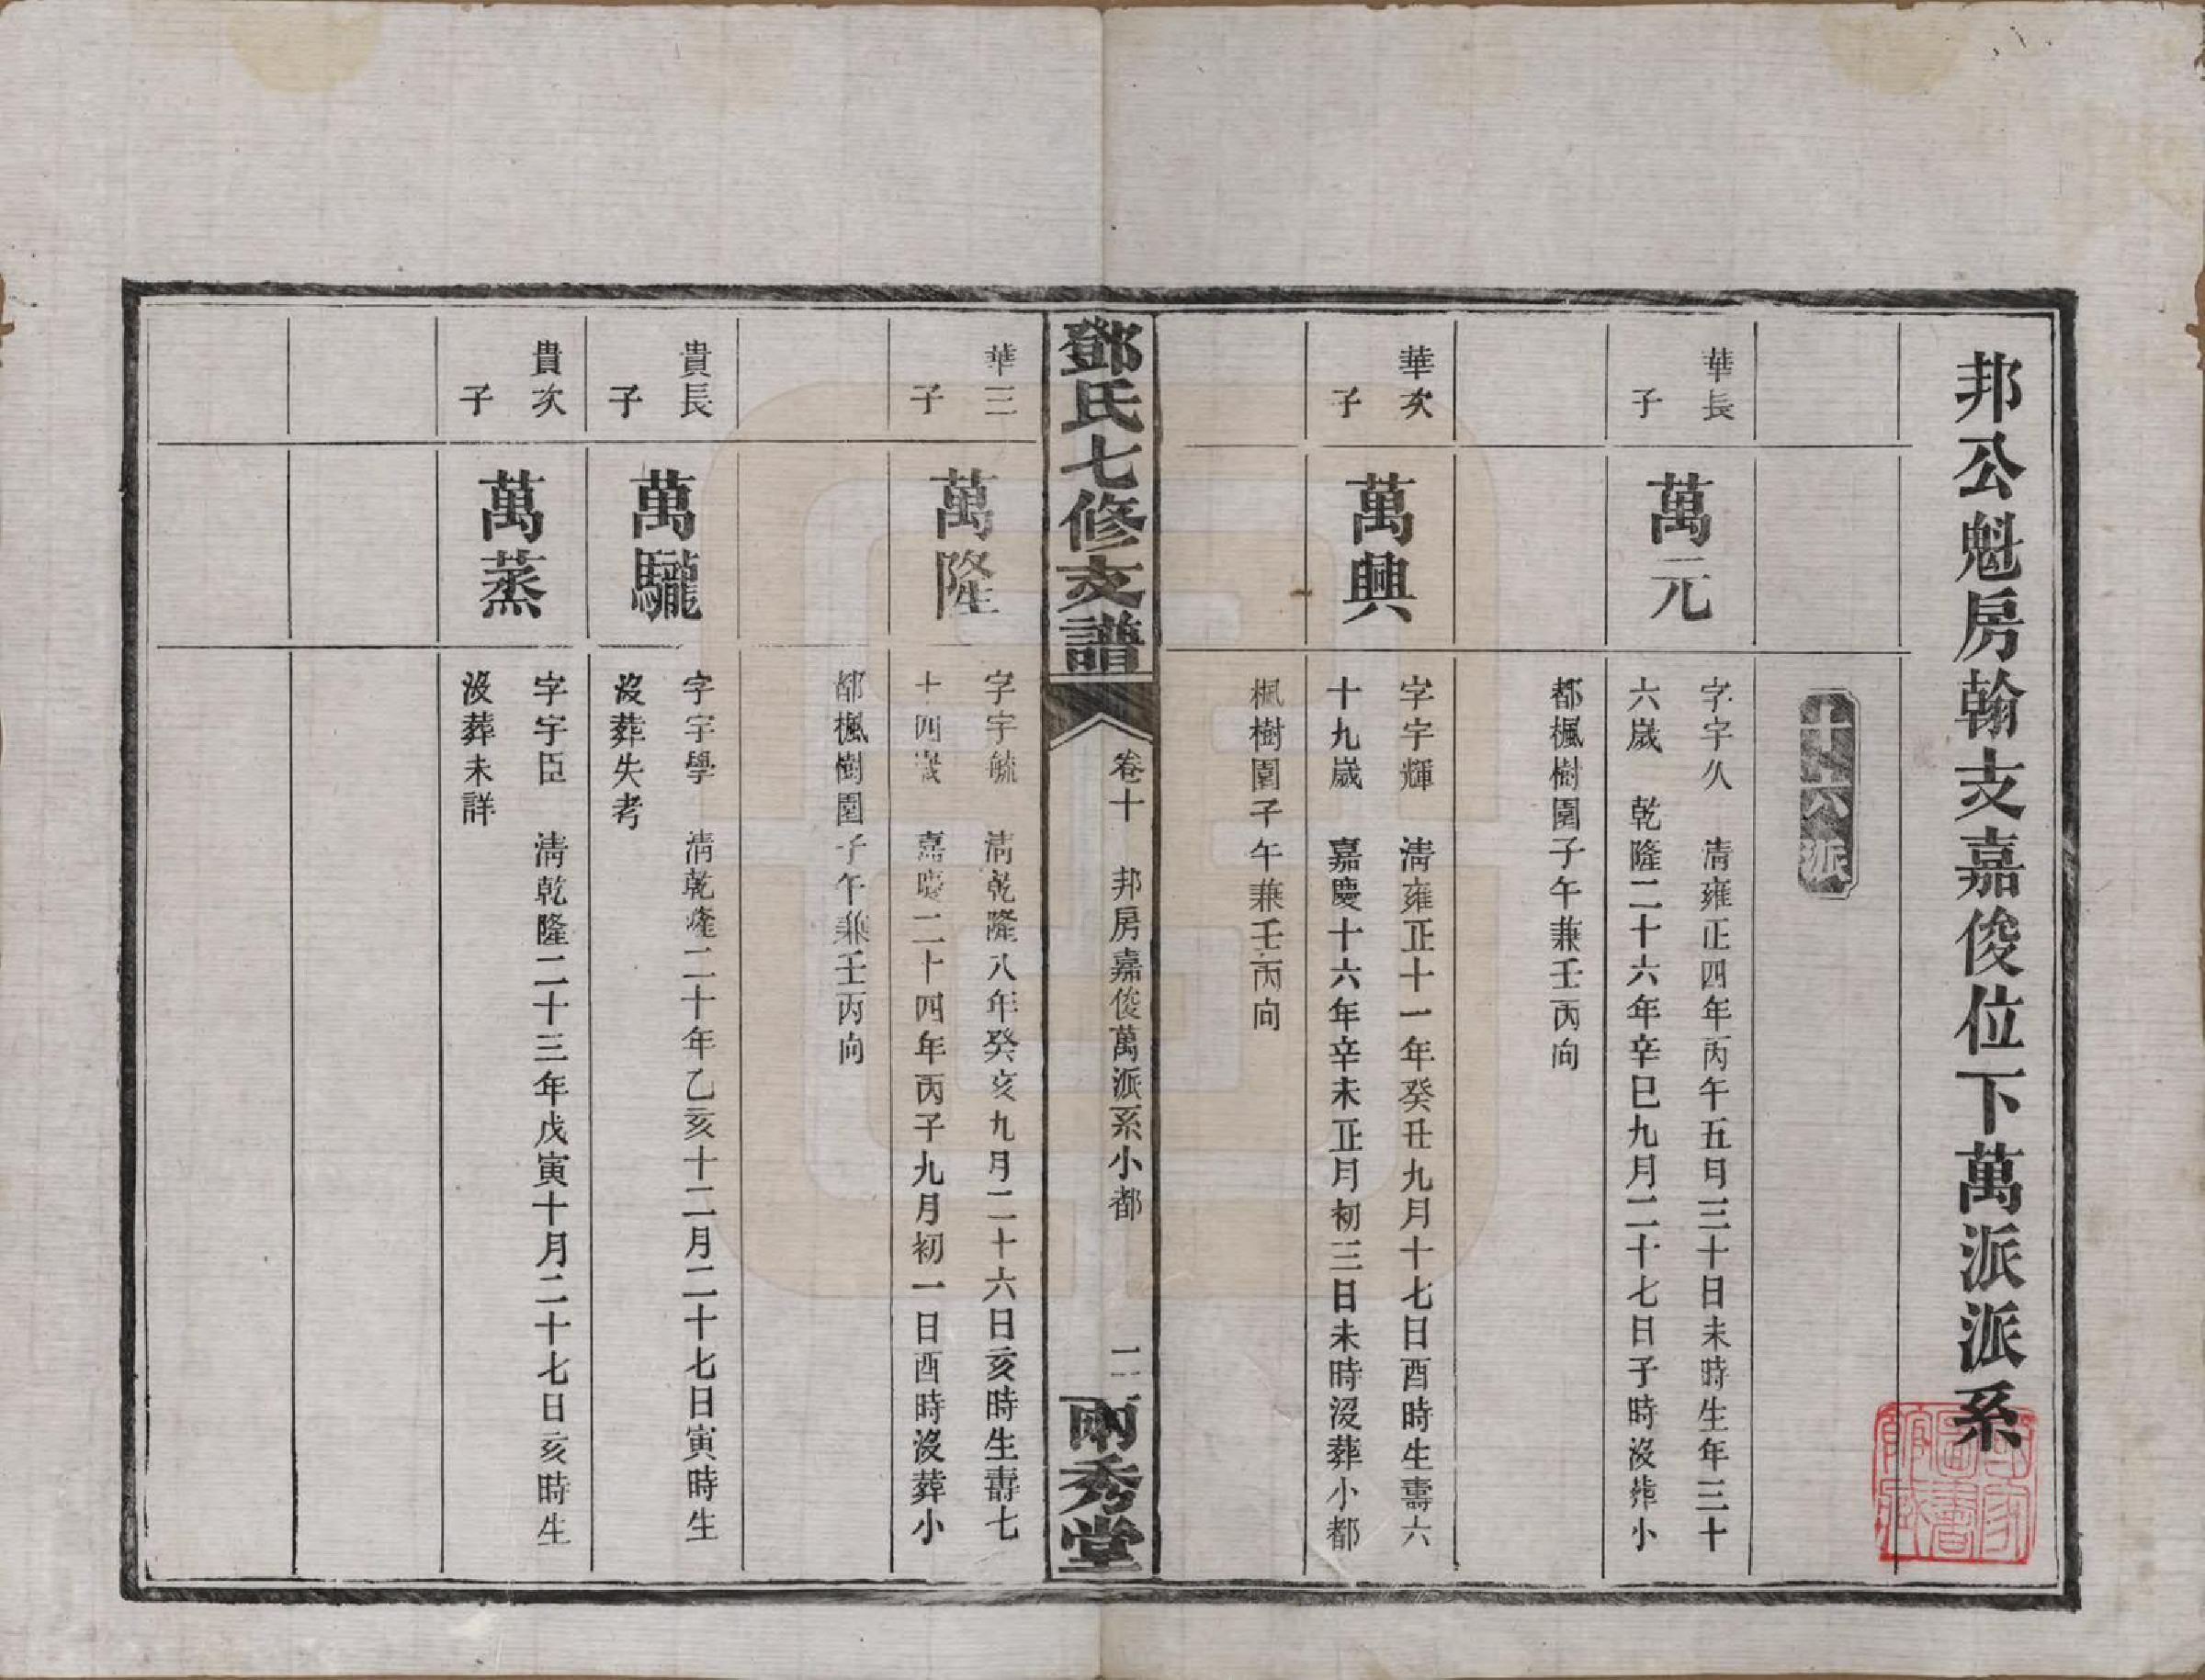 邦公魁房翰支嘉俊位下萬派派系
十六派
華長
子
萬元
字字久 清雍正四年丙午五月三十日未時生年三十
六歲 乾隆二十六年辛巳九月二十七日子時沒葬小
都楓樹園子午兼壬丙向
華次
子
萬興
字字輝 清雍正十一年癸丑九月十七日酉時生壽六
十九歲 嘉慶十六年辛未正月初三日未時沒葬小都
楓樹園子午兼壬丙向
鄧氏七修支譜
卷十 邦房嘉俊萬派系小都 二
兩秀堂
華三
子
萬隆
字字毓 清乾隆八年癸亥九月二十六日亥時生壽七
十四歲 嘉慶二十四年丙子九月初一日酉時沒葬小
都楓樹園子午兼壬丙向
貴長
子
萬驪
字字學 清乾隆二十年乙亥十二月二十七日寅時生
沒葬失考
貴次
子
萬蒸
字字臣 清乾隆二十三年戊寅十月二十七日亥時生
沒葬未詳